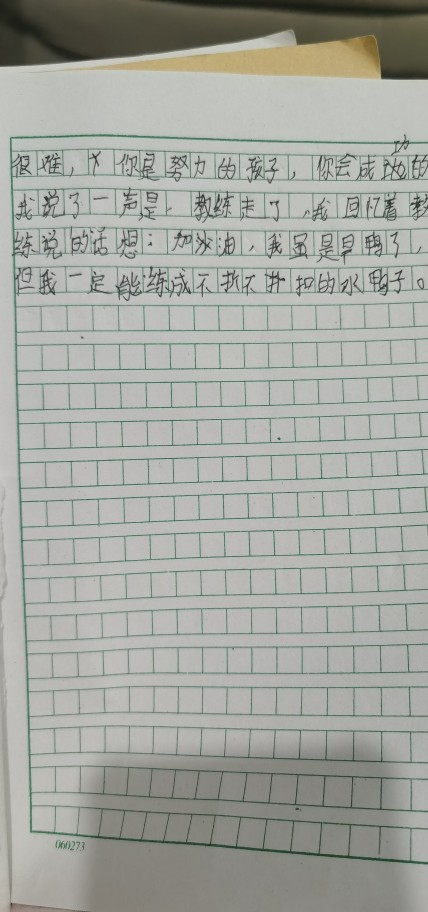 很难，你是努力的孩子，你会成功的
我说了一声是。教练走了，我回忆着教
练说的话想：加油，我虽是旱鸭子，
但我一定能练成不折不扣的水鸭子。
060273